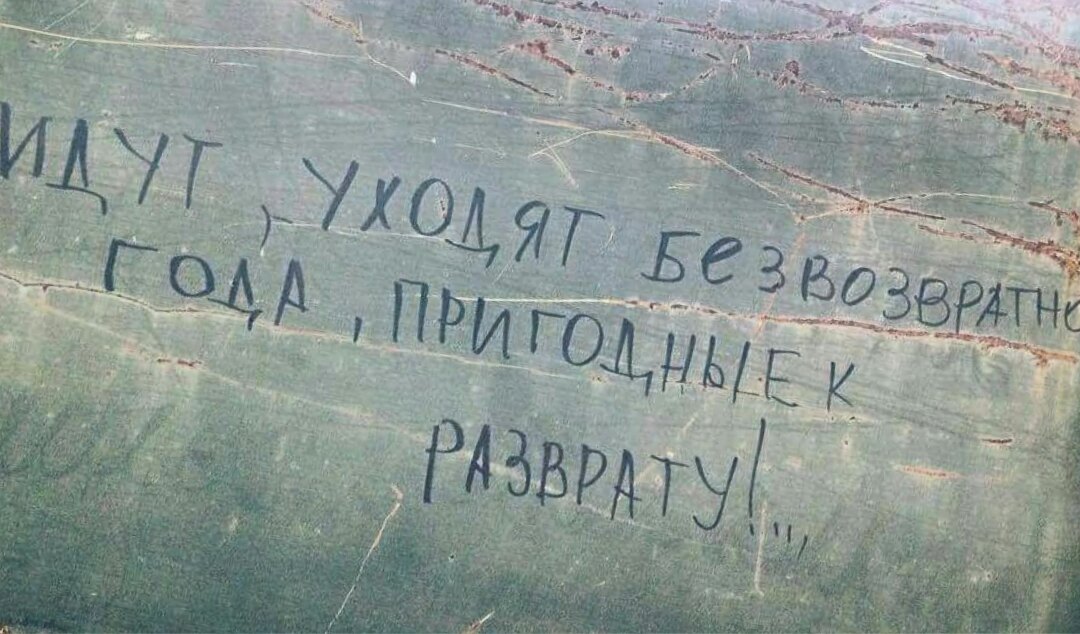 ИДУТ, УХОДЯТ БеЗВОЗВРАТНО
ГОДА, ПРИГОДНЫЕ К
РАЗВРАТУ!...